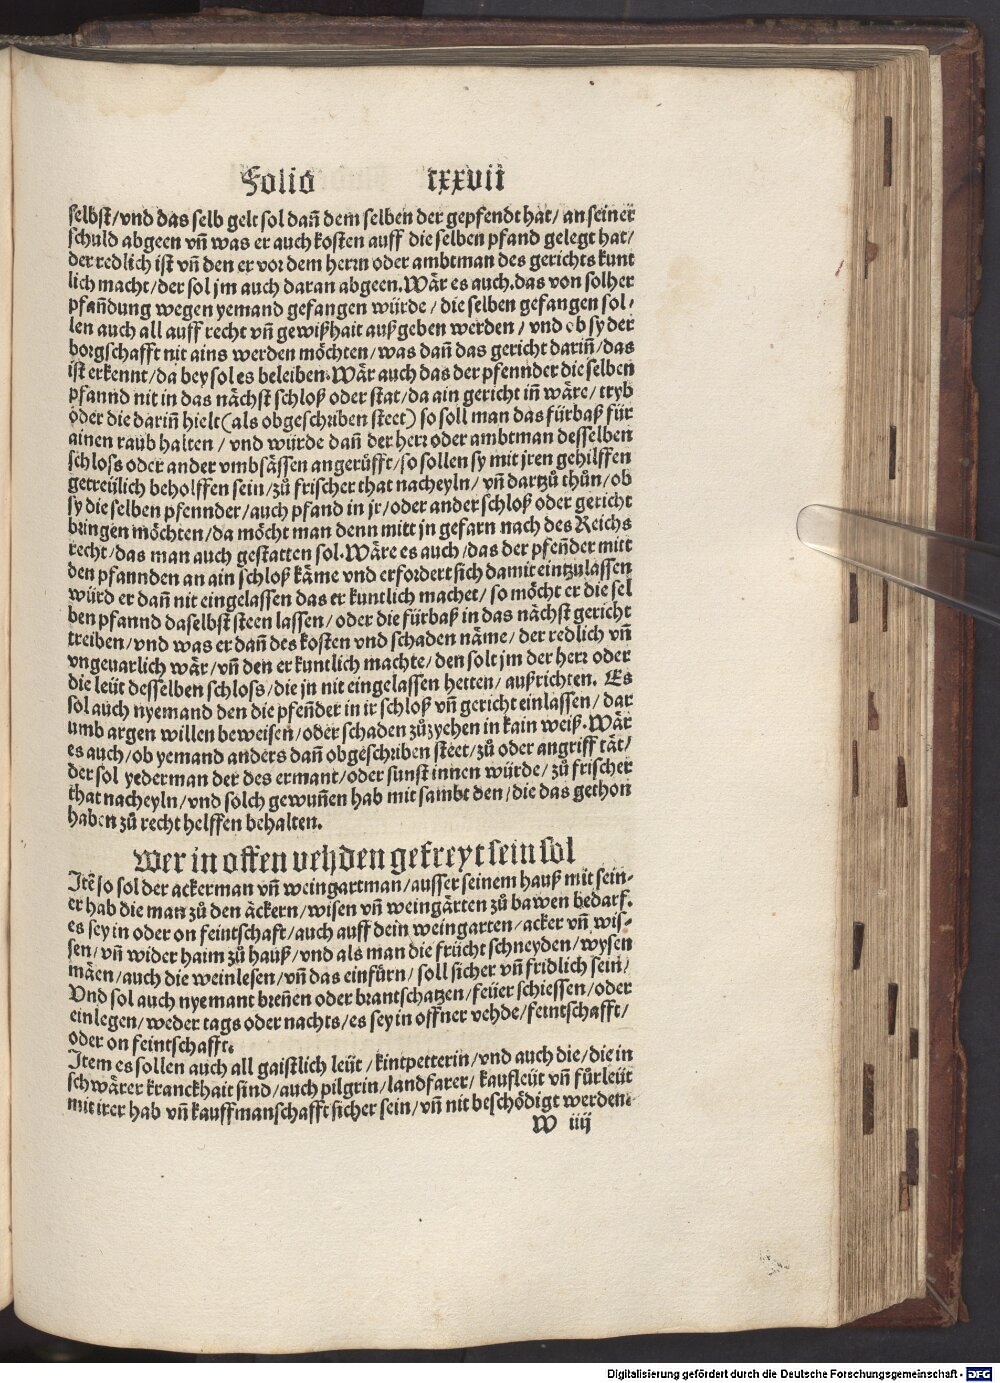 Folio lxxvii
selbst/vnd das selb gelt sol dañ dem selben der gepfendt hat/an seiner
schuld abgeen vñ was er auch kosten auff die selben pfand gelegt hat/
der redlich ist vñ den er vor dem herrn oder ambtman des gerichts kunt
lich macht/der sol jm auch daran abgeen.Wår es auch.das von solher
pfañdung wegen yemand gefangen würde/die selben gefangen sol/
len auch all auff recht vñ gewißhait auß geben werden/vnd ob sy der
borgschafft nit ains werden möchten/was dañ das gericht dariñ/das
ist erkennt/da bey sol es beleiben.Wår auch das der pfennder die selben
pfannd nit in das nåchst schloß oder stat/da ain gericht iñ wåre/tryb
oder die dariñ hielt(als obgeschriben steet)so soll man das fürbaß für
ainen raub halten/vnd würde dañ der herr oder ambtman desselben
schloss oder ander vmbsåssen angerůfft/so sollen sy mit jren gehilffen
getreülich beholffen sein/zů frischer that nacheyln/vñ dartzů thůn/ob
sy die selben pfennder/auch pfand in jr/oder ander schloß oder gericht
bringen möchten/da möcht man denn mitt jn gefarn nach des Reichs
recht/das man auch gestatten sol.Wåre es auch/das der pfeñder mitt
den pfannden an ain schloß kåme vnd erfordert sich damit eintzulassen
würd er dañ nit eingelassen das er kuntlich machet/so möcht er die sel
ben pfannd daselbst steen lassen/oder die fürbaß in das nåchst gericht
treiben/vnd was er dañ des kosten vnd schaden nåme/der redlich vñ
vngeuarlich wår/vñ den er kuntlich machte/den solt jm der herr oder
die leüt desselben schloss/die jn nit eingelassen hetten/außrichten. Es
sol auch nyemand den die pfeñder in ir schloß vñ gericht einlassen/dar
umb argen willen beweisen/oder schaden zůzyehen in kain weiß.Wår
es auch/ob yemand anders dañ obgeschriben steet/zů oder angriff tåt/
der sol yederman der des ermant/oder sunst innen würde/zů frischer
that nacheyln/vnd solch gewuñen hab mit sambt den/die das gethon
haben zů recht helffen behalten.
Wer in offen vehden gefreyt sein sol
Jtē so sol der ackerman vñ weingartman/ausser seinem hauß mit sein-
er hab die man zů den åckern/wisen vñ weingårten zů bawen bedarf.
es sey in oder on feintschaft/auch auff dein weingarten/acker vñ wis-
sen/vñ wider haim zů hauß/vnd als man die frücht schneyden/wysen
måen/auch die weinlesen/vñ das einfürn/soll sicher vñ fridlich sein/
Vnd sol auch nyemant breñen oder brantschatzen/feüer schiessen/oder
einlegen/weder tags oder nachts/es sey in offner vehde/feintschafft/
oder on feintschafft.
Jtem es sollen auch all gaistlich leüt/kintpetterin/vnd auch die/die in
schwårer kranckhait sind/auch pilgrin/landfarer/kaufleüt vñ fürleüt
mit irer hab vñ kauffmanschafft sicher sein/vñ nit beschödigt werden.
W iiij
Digitalisierung gefördert durch die Deutsche Forschungsgemeinschaft - DFG